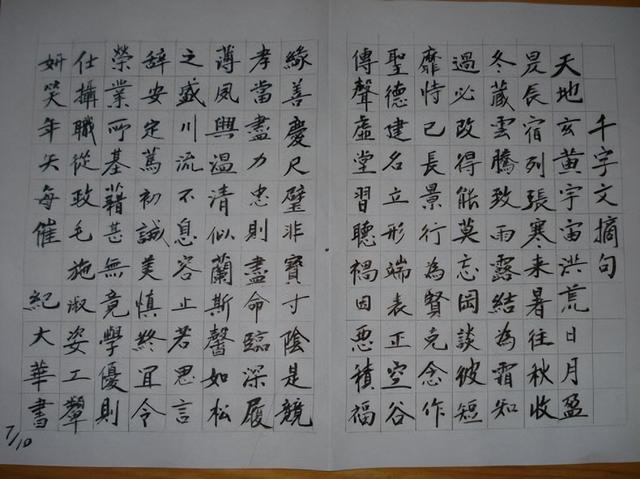 千字文摘句
天地玄黄宇宙洪荒日月盈
昃辰宿列張寒来暑往秋收
冬蔵雲騰致雨露結為霜知
過必改得能莫忘罔談彼短
靡恃己長景行為賢克念作
聖德建名立形端表正空谷
傳聲虛堂習聽禍因惡積福
緣善慶尺璧非寶寸陰是競
孝當盡力忠則盡命臨深履
薄夙興温清似蘭斯馨如松
之盛川流不息容止若思言
辞安定篤初誠美慎終宜令
榮業所基籍甚無竟學優則
仕攝職從政毛施淑姿工顰
妍笑年矢每催 紀大華書
7/10